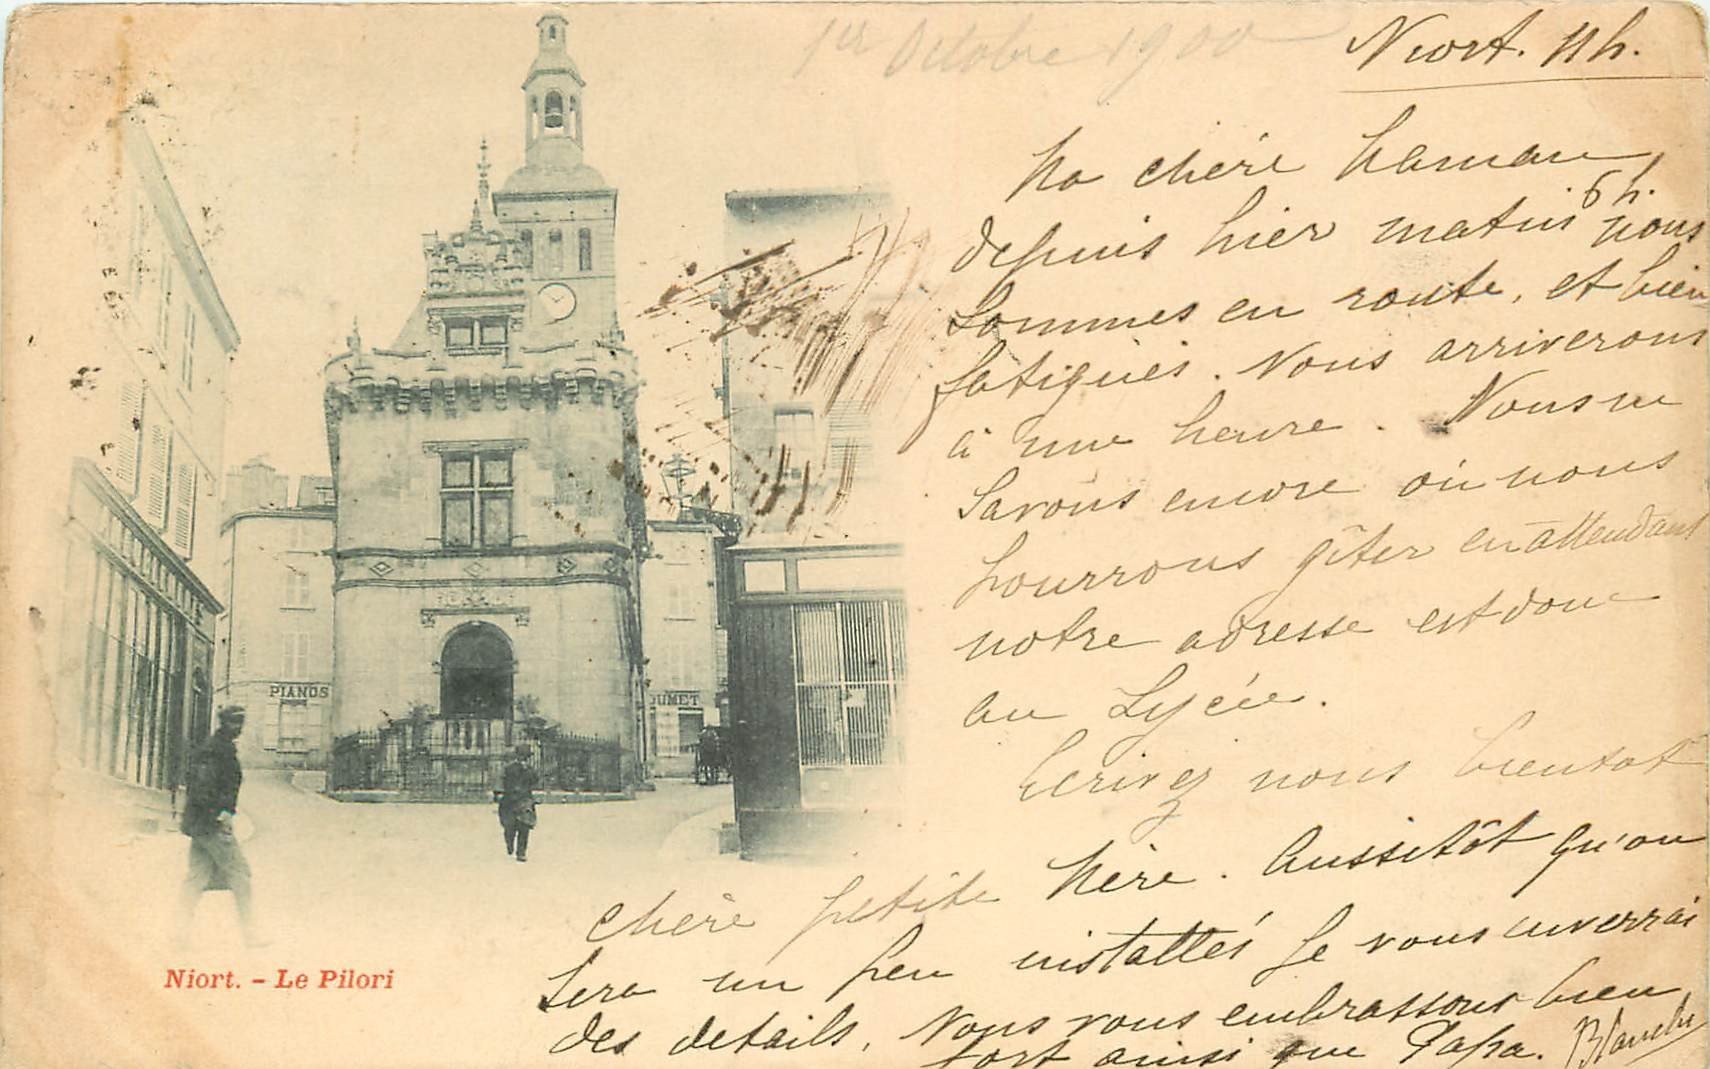 1er Octobre 1900
Niort. 11h.
Ma chère Maman,
depuis hier matin 6h. nous
sommes en route, et bien
fatigués. Nous arriverons
à une heure. Nous ne
savons encore où nous
pourrons gîter en attendant
notre adresse est donc
au Lycée.
Ecrivez nous bientôt
chère petite Mère. Aussitôt qu'on
sera un peu installés je vous enverrai
des détails. Nous vous embrassons bien
fort ainsi que Papa. Blanche
PIANOS
OUMET
Niort. - Le Pilori